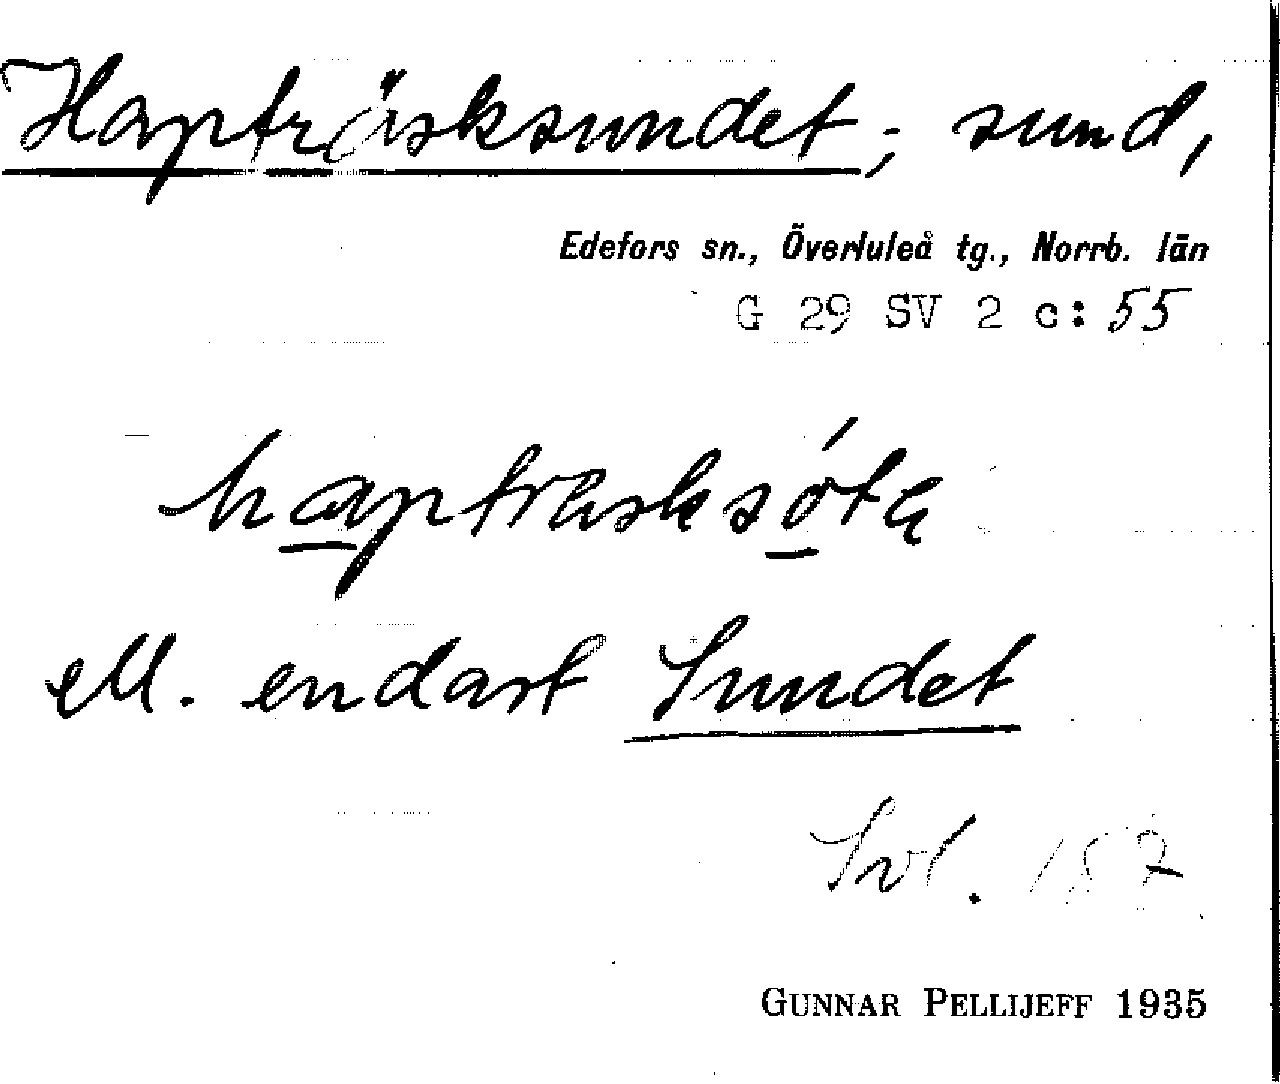 Hapträsksundet; sund,
Edefors sn., Överluleå tg., Norrb. län
G 29 SV 2 c: 55
haptrasksóta
ell. endast Sundet
GUNNAR PELLIJEFF 1935